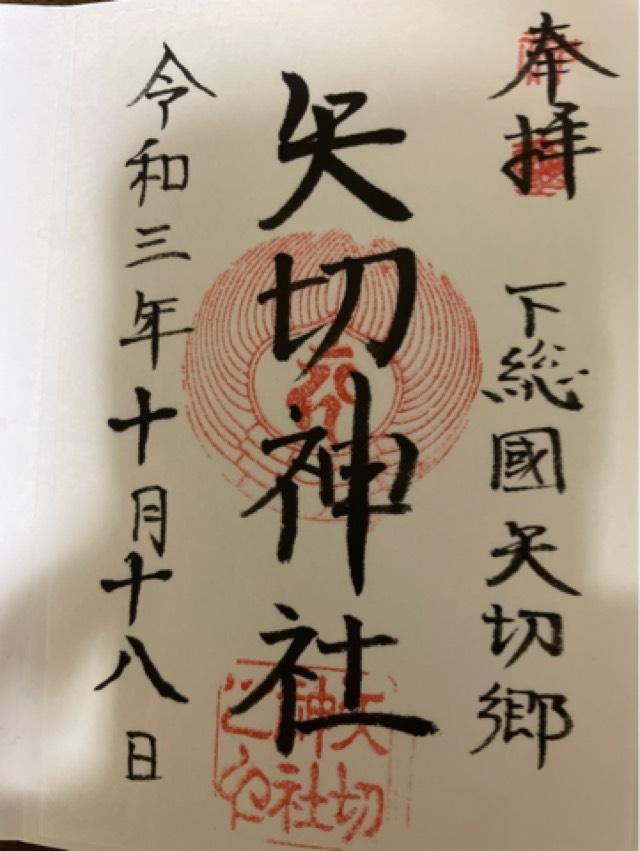 奉拝
下総國矢切郷
矢切神社
矢切
神社
令和三年十月十八日